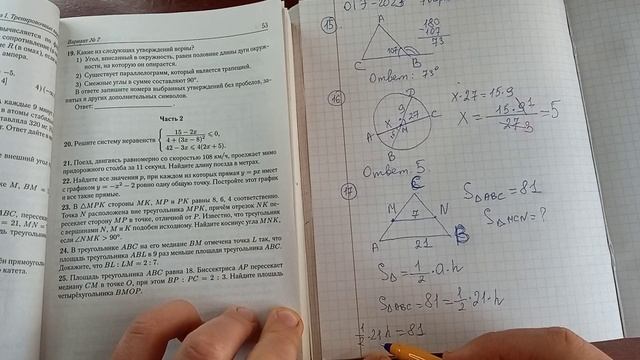 53
Вариант № 2
19. Какие из следующих утверждений верны?
1) Угол, вписанный в окружность, равен половине длины дуги окруж-
ности, на которую он опирается.
2) Существует параллелограмм, который является трапецией.
3) Смежные углы в сумме составляют 90°.
В ответе запишите номера выбранных утверждений без пробелов, за-
пятых и других дополнительных символов.
Ответ:
Часть 2
20. Решите систему неравенств
15 − 2x / 4 + (3x − 8)² ⩽ 0,
42 − 3x ⩽ 4(2x + 5).
21. Поезд, двигаясь равномерно со скоростью 108 км/ч, проезжает мимо
придорожного столба за 11 секунд. Найдите длину поезда в метрах.
22. Найдите все значения p, при каждом из которых прямая y = px имеет
с графиком y = −x² − 2 ровно одну общую точку. Постройте этот график
и все такие прямые.
23. В △MPK стороны MK, MP и PK равны 8, 6, 4 соответственно.
Точка N расположена вне треугольника MPK, причём отрезок NK пе-
ресекает сторону MP в точке, отличной от P. Известно, что треугольник
с вершинами N, M и K подобен исходному. Найдите косинус угла MNK,
если ∠NMK > 90°.
24. В треугольнике ABC на его медиане BM отмечена точка L так, что
площадь треугольника ABL в 9 раз меньше площади треугольника ABC.
Докажите, что BL : LM = 2 : 7.
25. Площадь треугольника ABC равна 18. Биссектриса AP пересекает
медиану CM в точке O, при этом BP : PC = 2 : 3. Найдите площадь
четырёхугольника BMOP.
15
A
180
-107
73
107
C
B
Ответ: 73°
16
D
9
27
C
X
A
B
X·27=15·9
X = 15·9 1 / 27 3 = 5
Ответ: 5
17
C
M
7
N
A
21
B
S△ABC = 81
S△MCN = ?
S△ = 1/2 · a · h
S△ABC = 81 = 1/2 · 21 · h
1/2 · 21h = 81